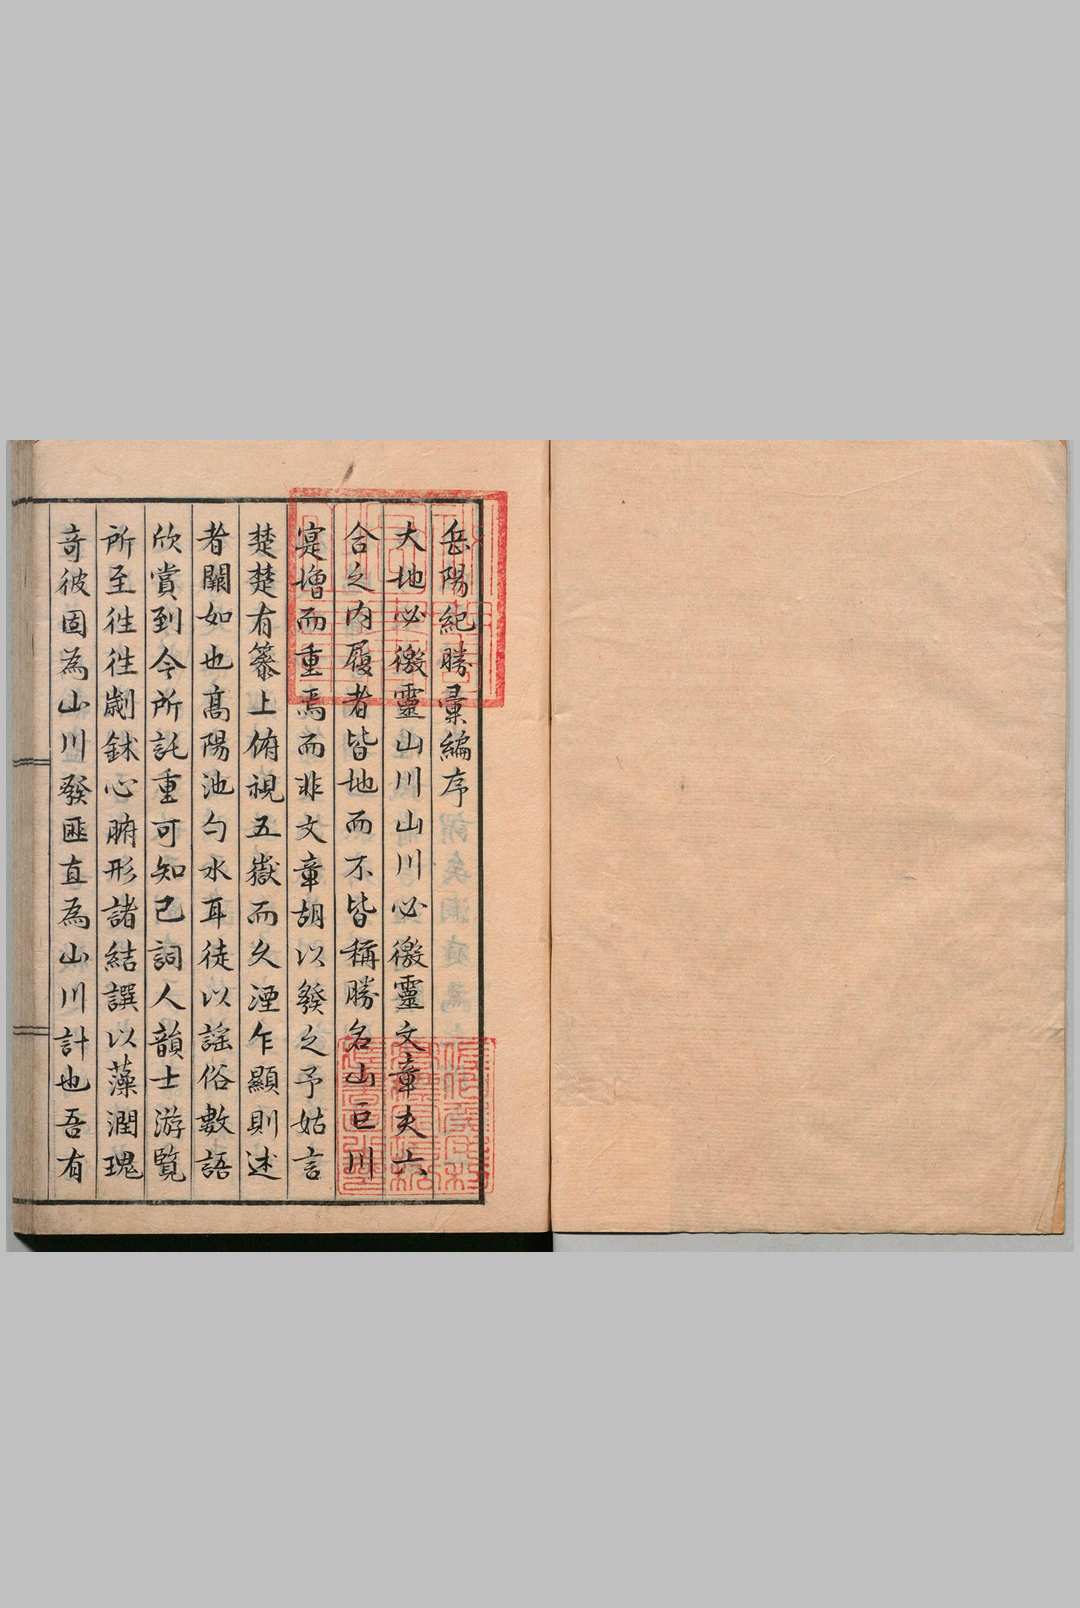 岳陽紀勝彙編序
大地必徼靈山川山川必徼靈文章夫六
合之内履者皆地而不皆稱勝名山巨川
寔增而重焉而非文章胡以發之予姑言
楚楚有篸上俯視五嶽而久湮乍顯則述
者闕如也高陽池勺水耳徒以謡俗數語
欣賞到今所託重可知已詞人韻士游覽
所至徃徃劌鉥心腑形諸結譔以藻潤瑰
奇彼固為山川發匪直為山川計也吾有